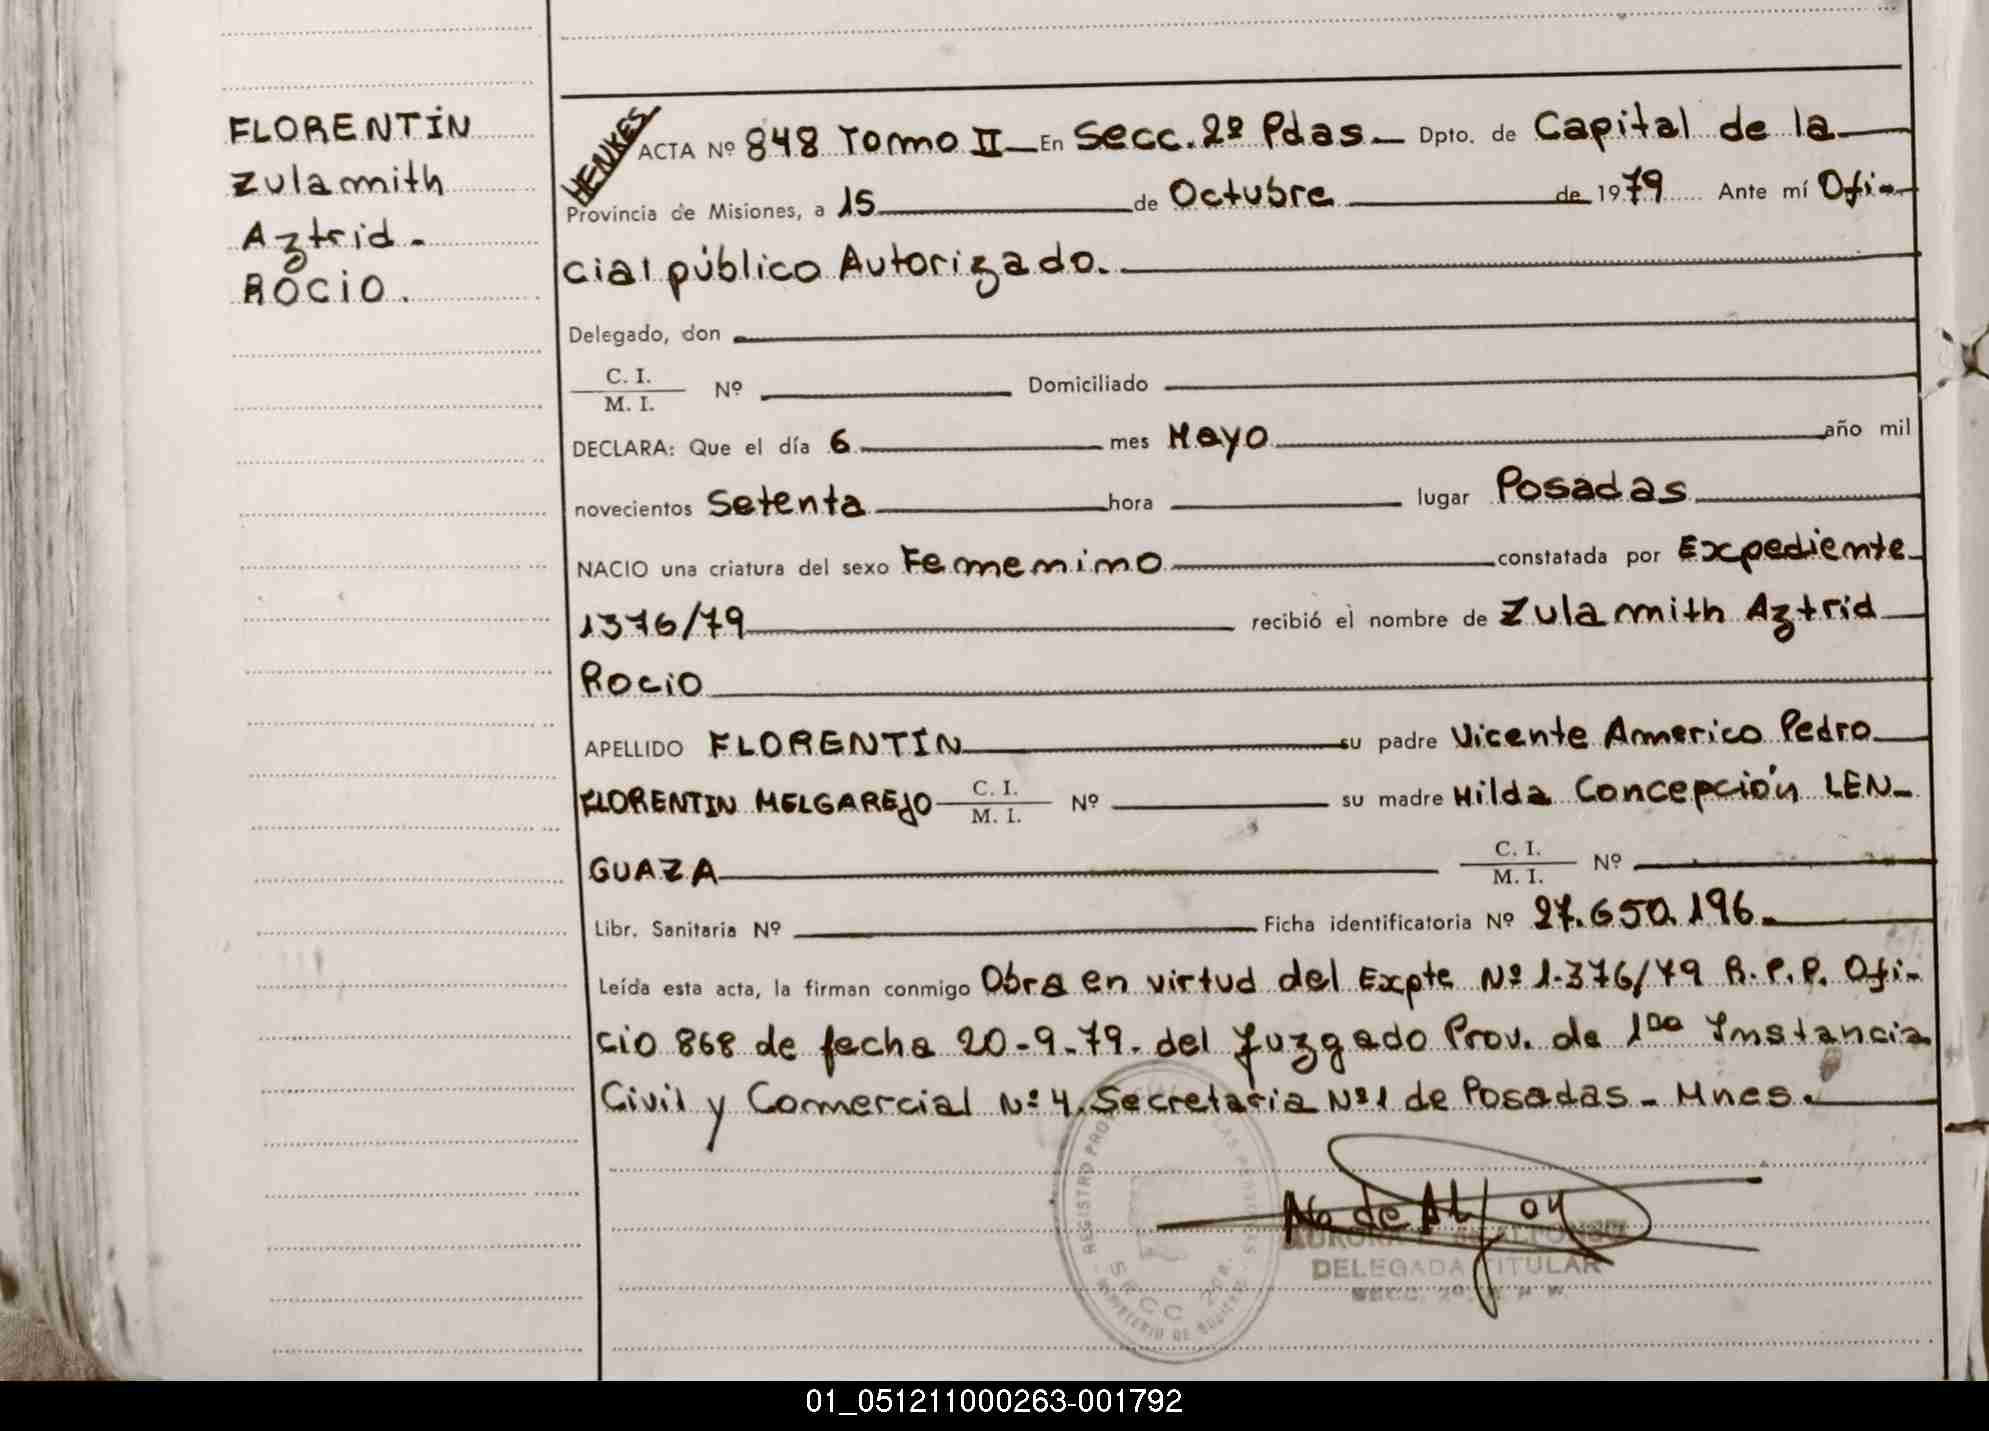 FLORENTÍN
Zulamith
Aztrid -
ROCIO.
HENKES
ACTA Nº 848 Tomo II En Secc. 2º Pdas. Dpto. de Capital de la
Provincia de Misiones, a 15 de Octubre de 1979 Ante mí Ofi-
cial público Autorizado.
Delegado, don
C. I.
M. I. Nº Domiciliado
DECLARA: Que el día 6 mes Mayo año mil
novecientos Setenta hora lugar Posadas
NACIO una criatura del sexo Femenino constatada por Expediente
1376/79 recibió el nombre de Zulamith Aztrid
Rocio
APELLIDO FLORENTÍN su padre Vicente Americo Pedro
FLORENTIN MELGAREJO C. I.
M. I. Nº su madre Hilda Concepción LEN-
GUAZA C. I.
M. I. Nº
Libr. Sanitaria Nº Ficha identificatoria Nº 27.650.196.
Leída esta acta, la firman conmigo Obra en virtud del Expte Nº 1.376/79 R.P.P. Ofi-
cio 868 de fecha 20-9-79. del Juzgado Prov. de 1ra Instancia
Civil y Comercial Nº 4. Secretaria Nº1 de Posadas - Mnes.
REGISTRO
SECC 2da.
DELEGADA TITULAR
01_051211000263-001792